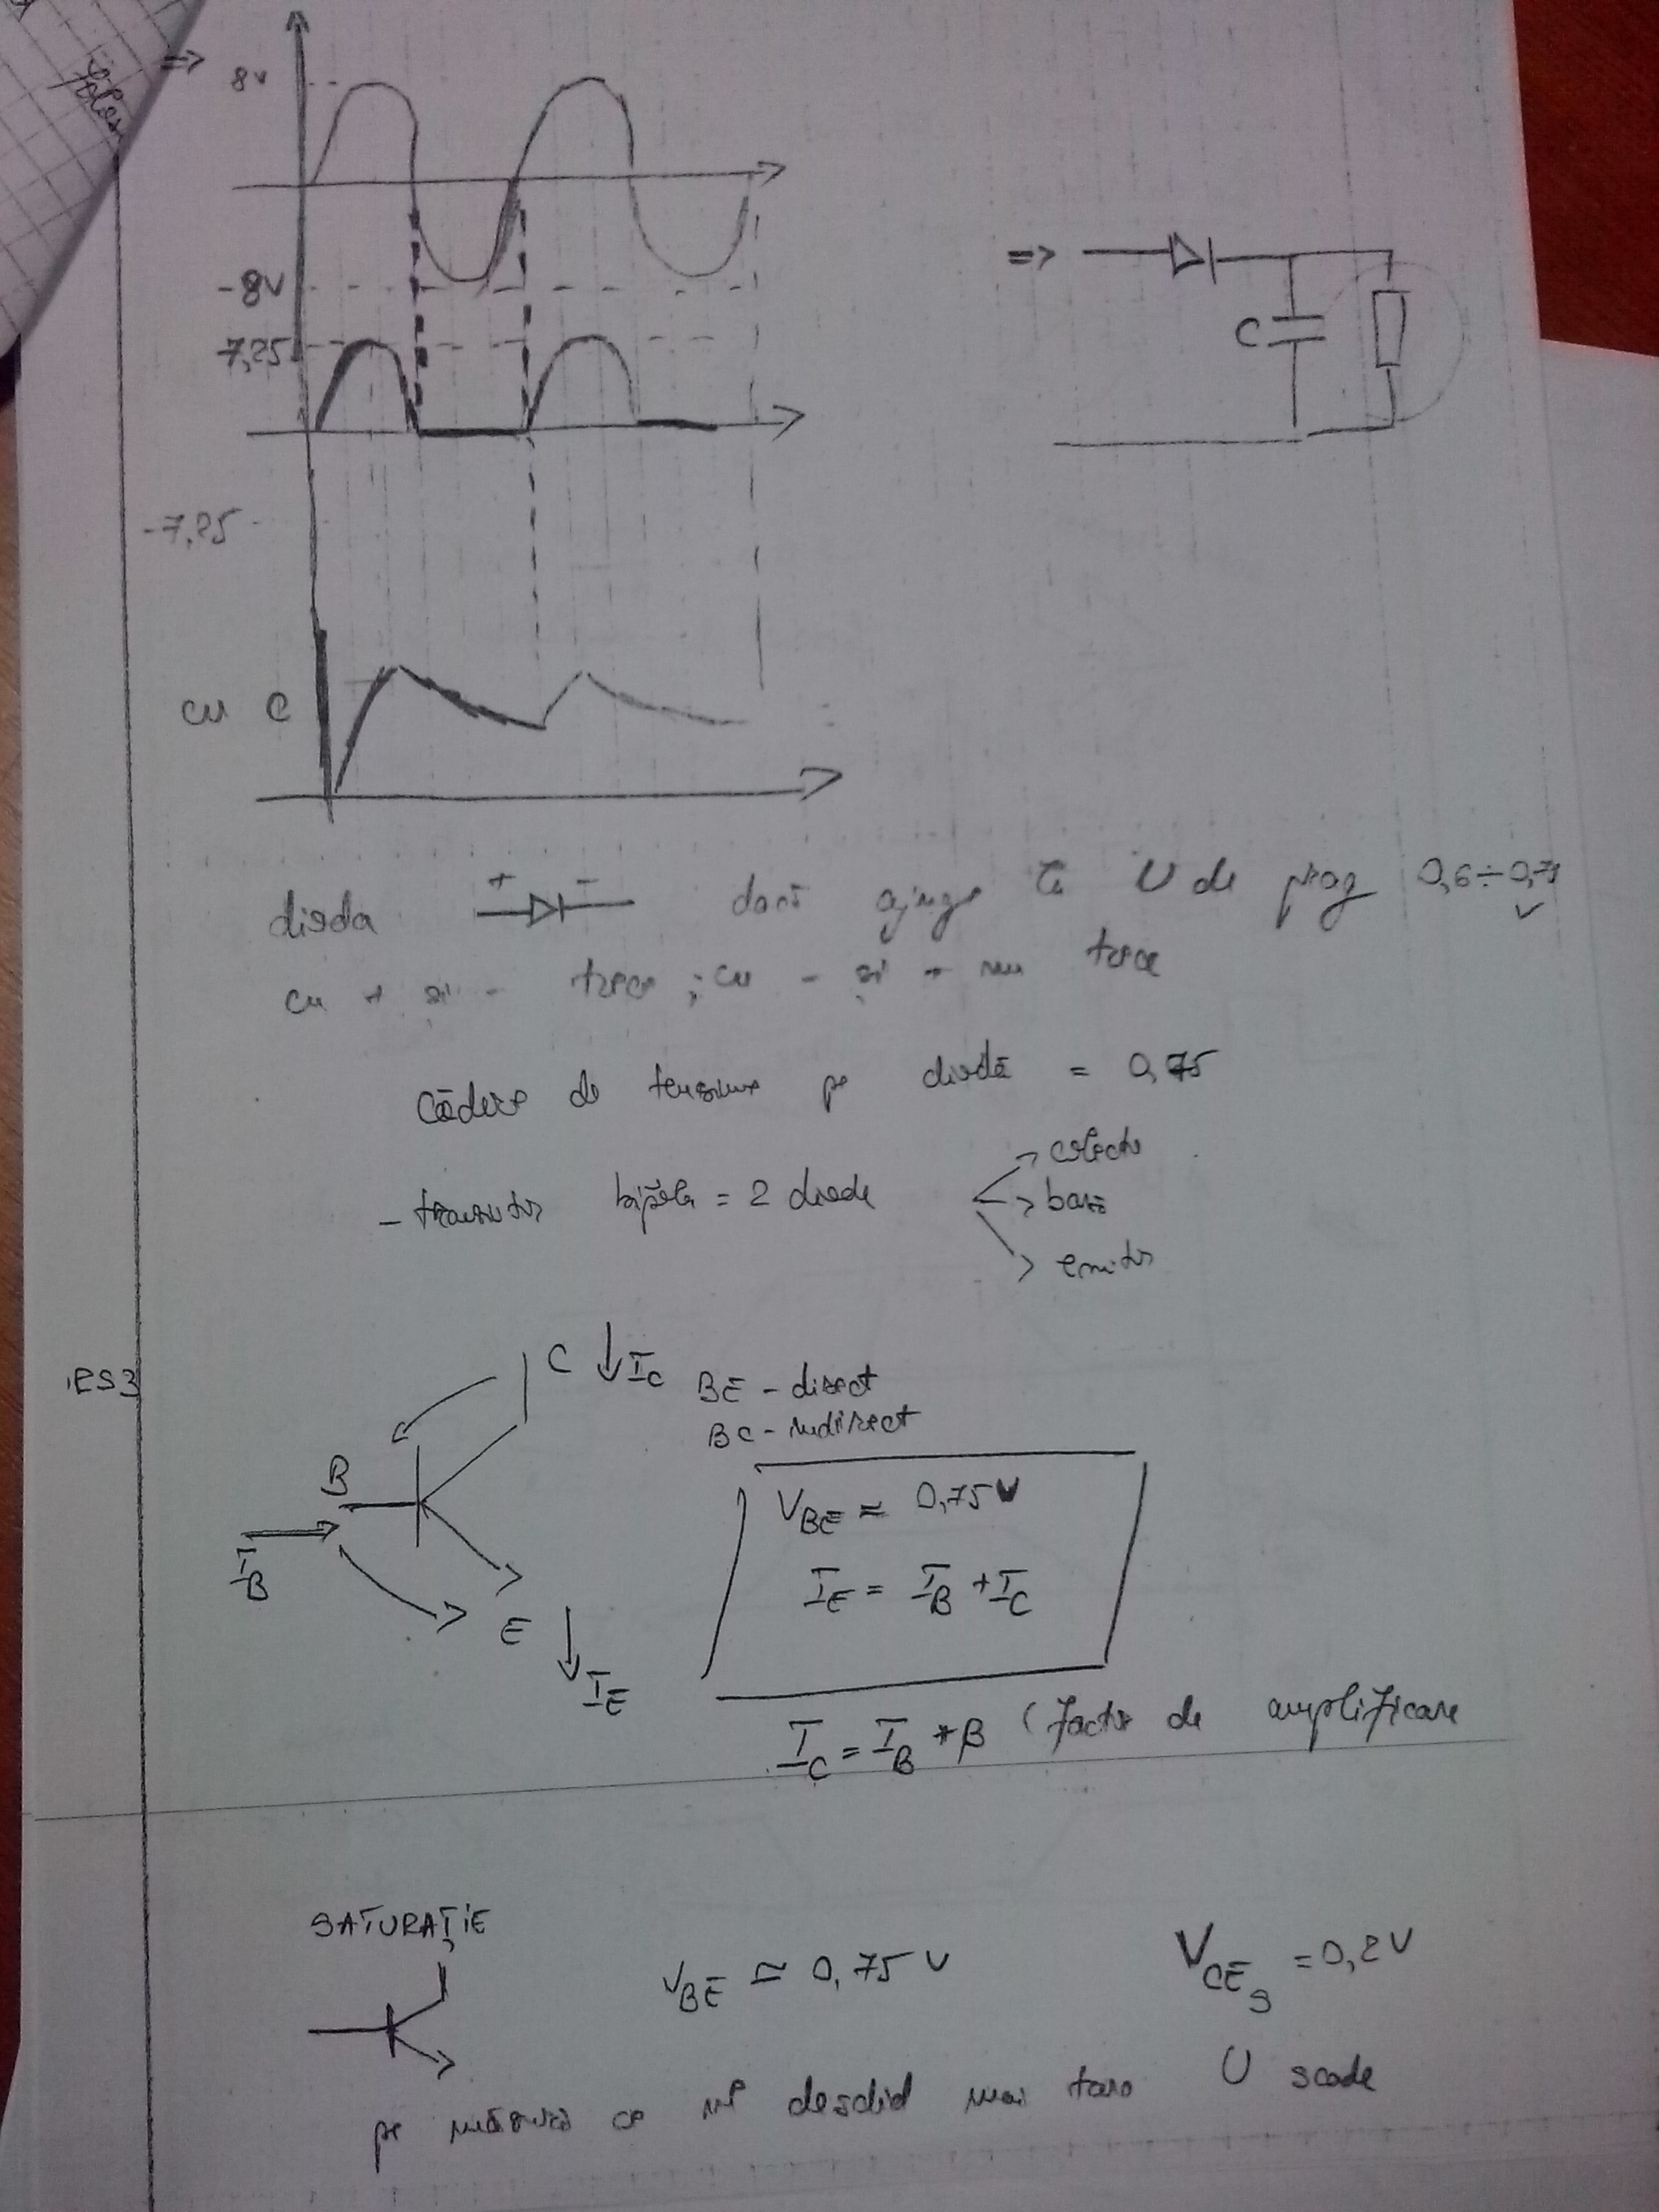 =>
8v
-8v
7,25
-7,25
=>
C
cu C
dioda + - dacă ajunge la U de prag 0,6÷0,7
v
cu + și - trece ; cu - și + nu trece
Cădere de tensiune pe diodă = 0,75
- tranzistor bipolar = 2 diode
→ colector
→ bază
→ emitor
C ↓ IC
BE - direct
BC - indirect
B
IB
E
↓ IE
VBE ≈ 0,75 V
IE = IB + IC
IC = IB * β (factor de amplificare
SATURAȚIE
VBE ≃ 0,75 V
VCES = 0,2 V
pe măsură ce se deschid mai tare U scade